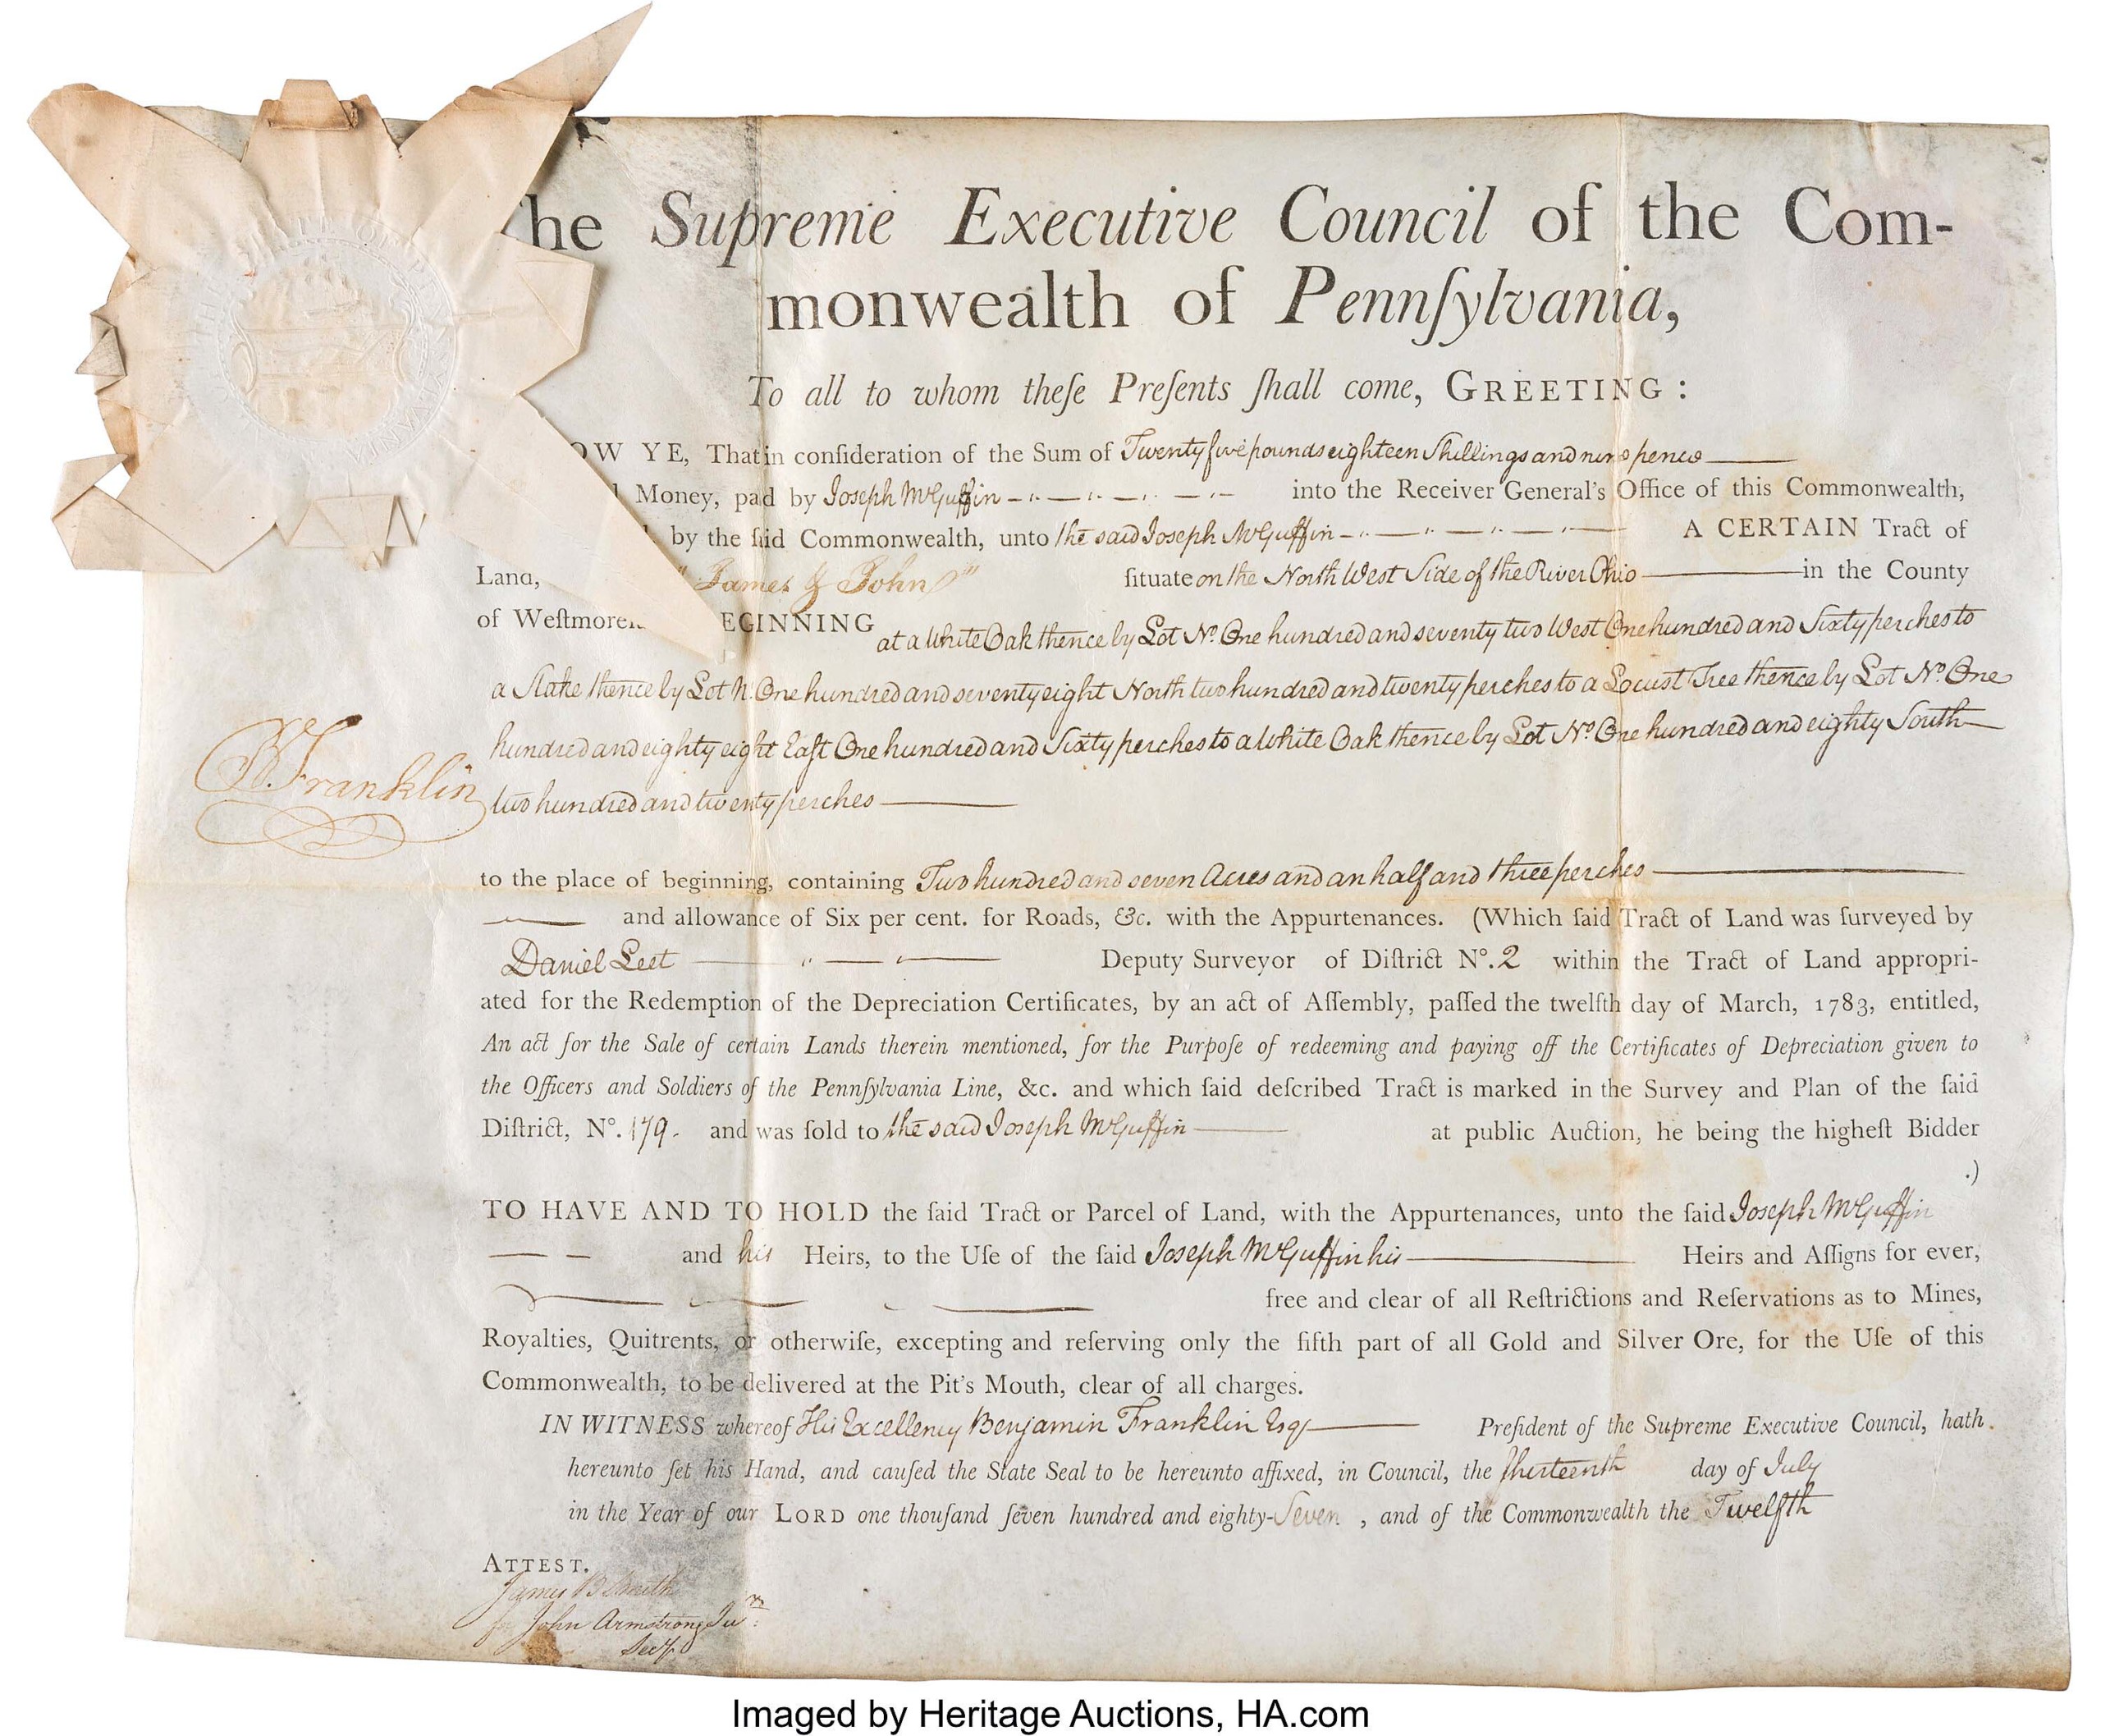 he Supreme Executive Council of the Com-
monwealth of Pennſylvania,
To all to whom theſe Preſents ſhall come, GREETING:
OW YE, That in conſideration of the Sum of Twenty five pounds eighteen Shillings and nine pence
Money, paid by Joseph McGuffin into the Receiver General's Office of this Commonwealth,
by the ſaid Commonwealth, unto the said Joseph McGuffin A CERTAIN Tract of
Land, "James & John" ſituate on the North West Side of the River Ohio in the County
of Weſtmorel EGINNING at a White Oak thence by Lot No. One hundred and seventy two West One hundred and Sixty perches to
a Stake thence by Lot N. One hundred and seventy eight North two hundred and twenty perches to a Locust Tree thence by Lot No. One
hundred and eighty eight Eaſt One hundred and Sixty perches to a White Oak thence by Lot No. One hundred and eighty South
B. Franklin
two hundred and twenty perches
to the place of beginning, containing Two hundred and seven Acres and an half and three perches
and allowance of Six per cent. for Roads, &c. with the Appurtenances. (Which ſaid Tract of Land was ſurveyed by
Daniel Leet Deputy Surveyor of Diſtrict No. 2 within the Tract of Land appropri-
ated for the Redemption of the Depreciation Certificates, by an act of Aſſembly, paſſed the twelfth day of March, 1783, entitled,
An act for the Sale of certain Lands therein mentioned, for the Purpoſe of redeeming and paying off the Certificates of Depreciation given to
the Officers and Soldiers of the Pennſylvania Line, &c. and which ſaid deſcribed Tract is marked in the Survey and Plan of the ſaid
Diſtrict, No. 179. and was ſold to the said Joseph McGuffin at public Auction, he being the higheſt Bidder
.)
TO HAVE AND TO HOLD the ſaid Tract or Parcel of Land, with the Appurtenances, unto the ſaid Joseph McGuffin
and his Heirs, to the Uſe of the ſaid Joseph McGuffin his Heirs and Aſſigns for ever,
free and clear of all Reſtrictions and Reſervations as to Mines,
Royalties, Quitrents, or otherwiſe, excepting and reſerving only the fifth part of all Gold and Silver Ore, for the Uſe of this
Commonwealth, to be delivered at the Pit's Mouth, clear of all charges.
IN WITNESS whereof His Excellency Benjamin Franklin Esq Preſident of the Supreme Executive Council, hath
hereunto ſet his Hand, and cauſed the State Seal to be hereunto affixed, in Council, the thirteenth day of July
in the Year of our LORD one thouſand ſeven hundred and eighty-Seven, and of the Commonwealth the Twelfth
ATTEST.
James B Smith
for John Armstrong Junr.
Secy
Imaged by Heritage Auctions, HA.com